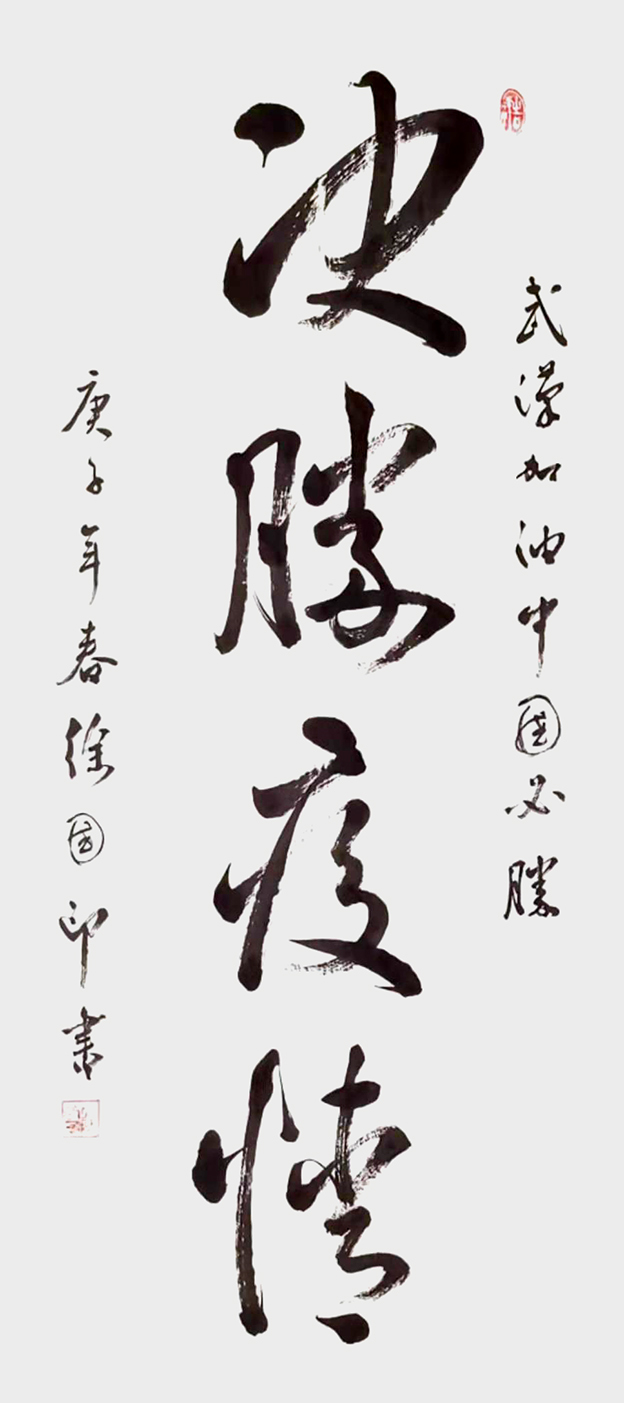 武漢加油中國必勝
决勝疫情
庚子年春徐國印書